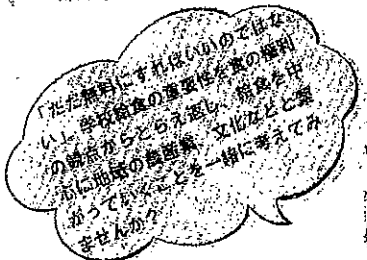 「ただ無料にすればいいのではな
い」学校給食の重要性を食の権利
の視点からとらえ返し、給食を中
心に地域の農産業、文化などと繋
がっていくことを一緒に考えてみ
ませんか？